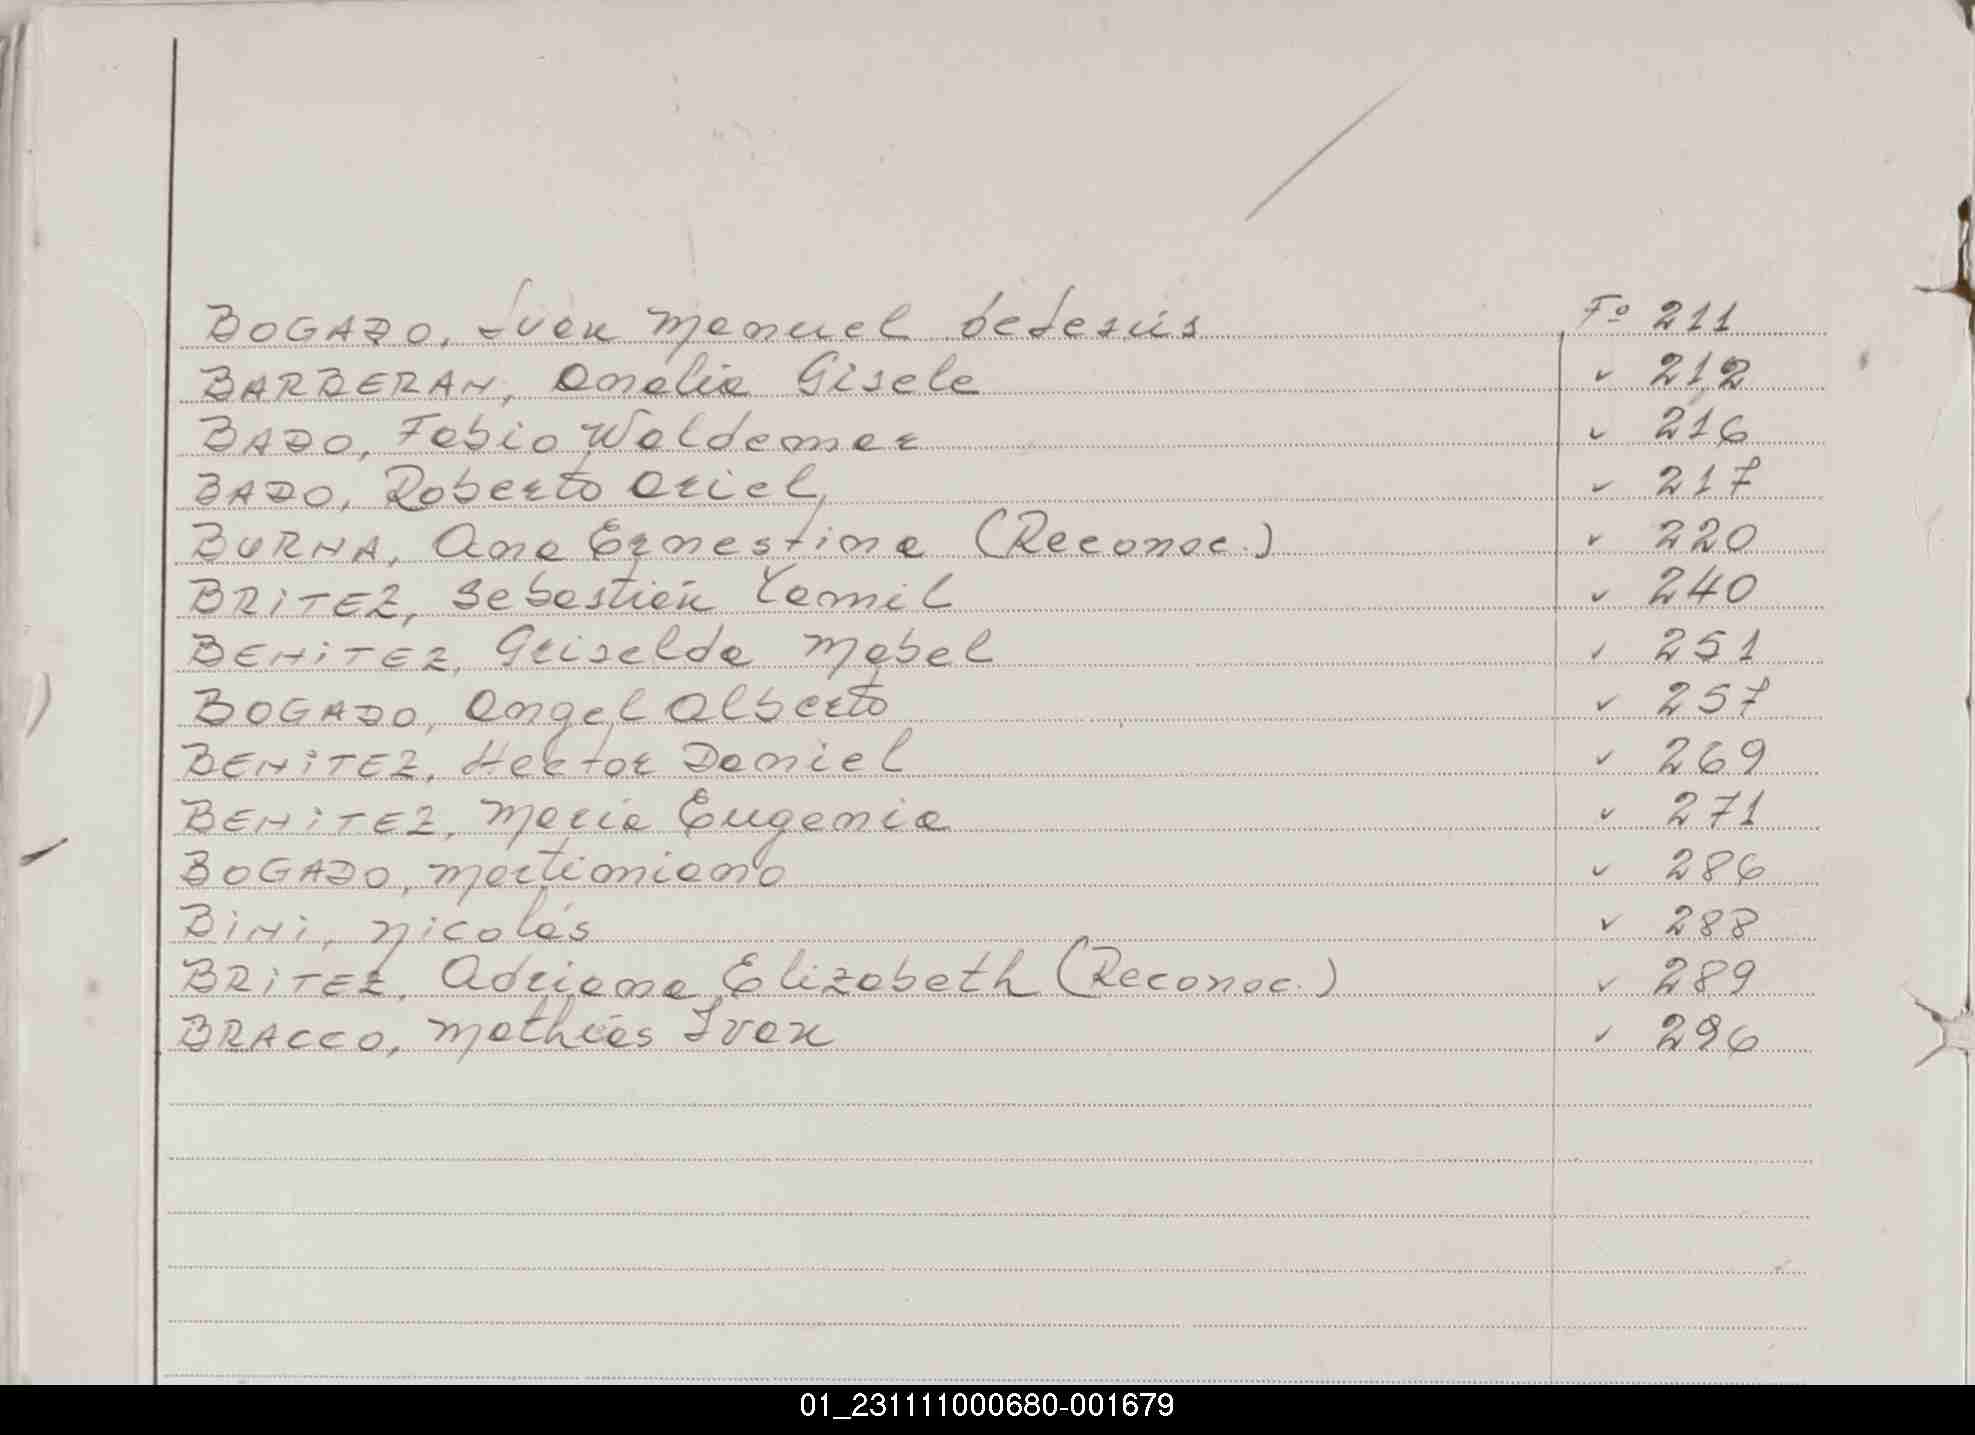 BOGADO, Iván Manuel deJesús Fº 211
BARBERAN, Analia Gisele ✓ 212
BADO, Fabio Waldemar ✓ 216
BADO, Roberto Ariel ✓ 217
BURNA, Ana Ernestina (Reconoc.) ✓ 220
BRiTEZ, Sebastián Yamil ✓ 240
BENiTEZ, Griselda Mabel ✓ 251
BOGADO, Angel Alberto ✓ 257
BENiTEZ, Hector Daniel ✓ 269
BENiTEZ, Maria Eugenia ✓ 271
BOGADO, Martimiano ✓ 286
BiNi, Nicolás ✓ 288
BRiTEZ, Adriana Elizabeth (Reconoc.) ✓ 289
BRACCO, Mathías Ivan ✓ 296
01_231111000680-001679